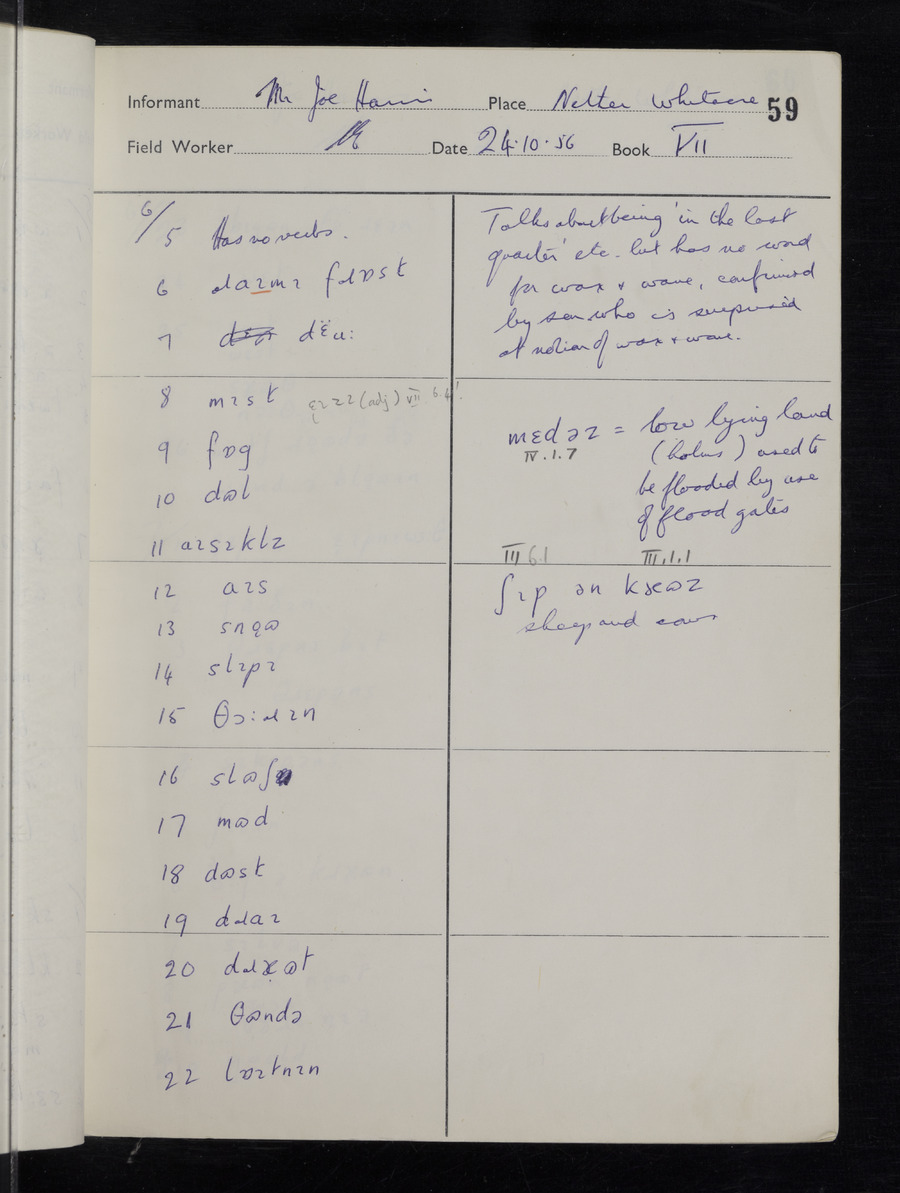 Informant Mr Joe Harris Place Nether Whitacre 59
Field Worker Date 24.10.56 Book VII
6/5 Has no verbs.
6 ɹaɪmɪ fɹɒst
7 dëu:
8 mɪst (adj) VII 6.4!
9 fɒg
10 dɷl
11 aɪsɪklz
12 aɪs
13 snɔɷ
14 slɪpɪ
15 θɔ:ɹɪn
16 slɷʃ
17 mɷd
18 dɷst
19 dɹaɪ
20 dɹæɷt
21 θɷndə
22 lɒɪtnɪn
Talks about being 'in the last
quarter' etc. but has no word
for wax & wane, confirmed
by son who is surprised
at notion of wax & wane.
mɛdəz = low lying land
IV.1.7 (holms) used to
be flooded by use
of flood gates
III 6.1 III.1.1
ʃɪp ən kæɷz
sheep and cows